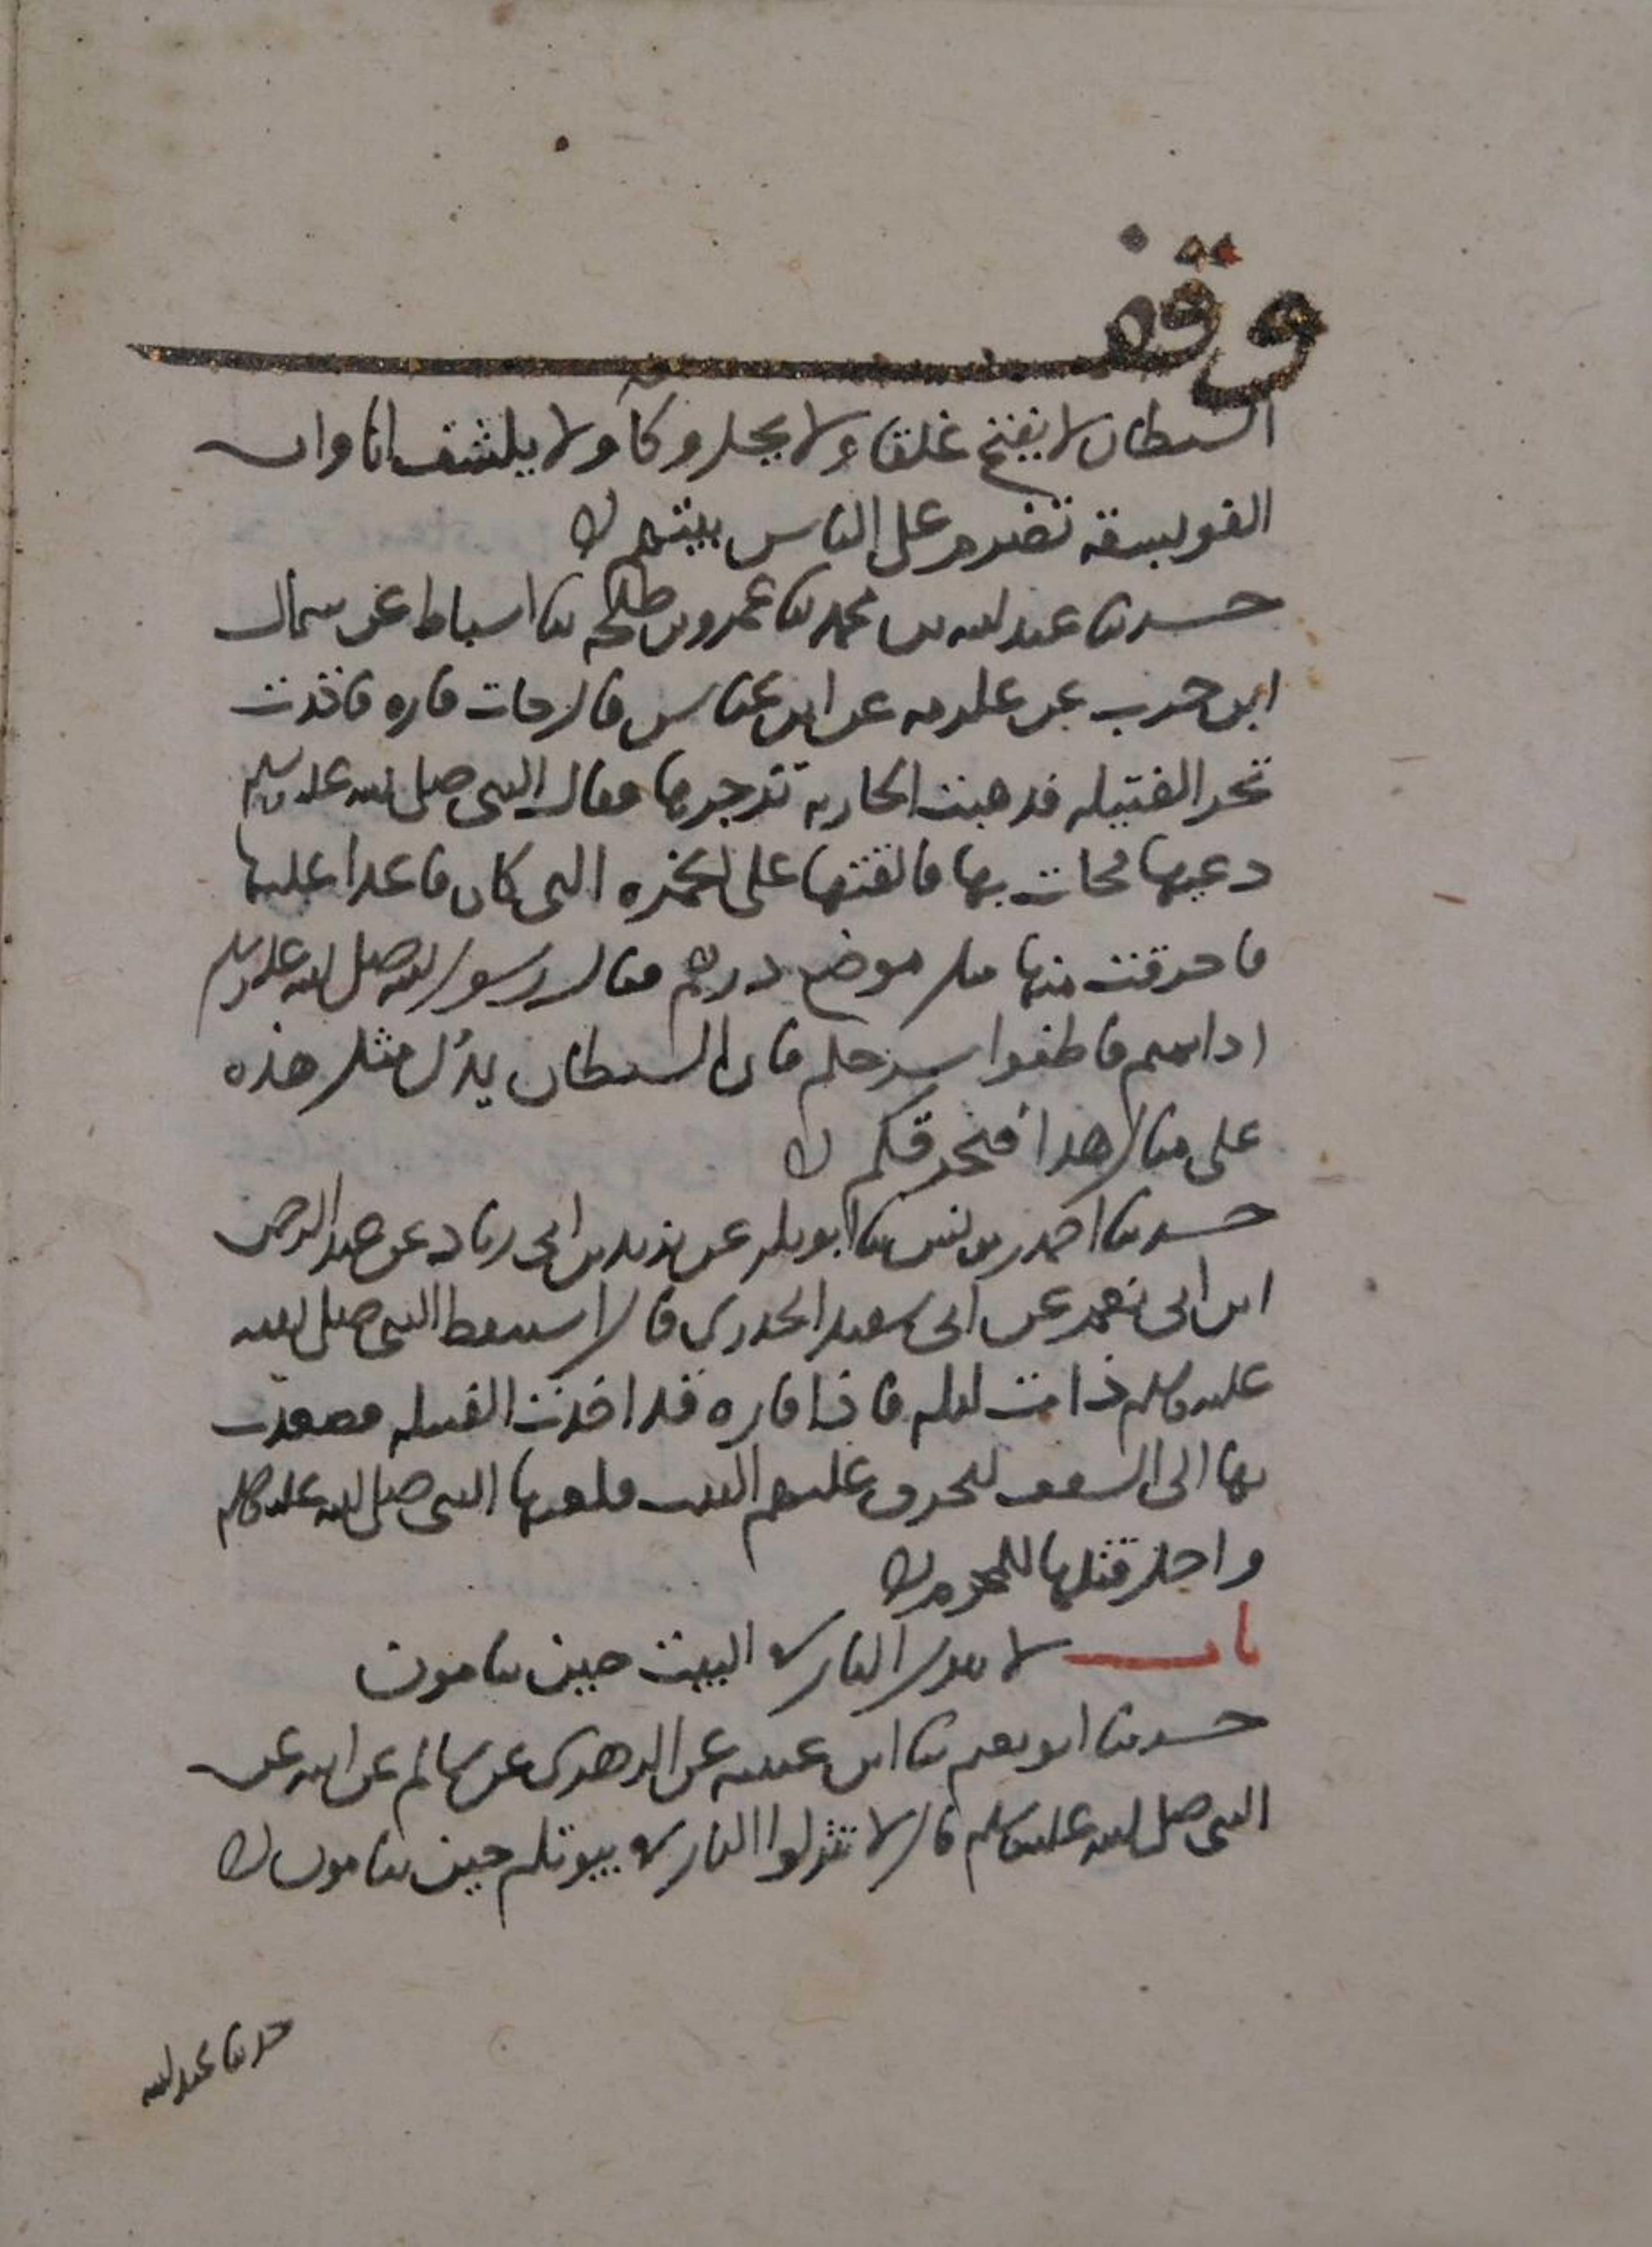 وقف
الشيطان لا يفتح غلقا ولا يحل وكآ ولا يكشف انا وان
الفويسقة تضرم على الناس بيتهم
حدثنا عبد الله بن محمد ثنا عمرو بن طلحة ثنا اسباط عن سماك
ابن حرب عن عكرمه عن ابن عباس قال جات فاره فاخذت
تجر الفتيله فذهبت الجاريه تزجرها فقال النبي صلى الله عليه وسلم
دعيها فجات بها فالقتها على الخمره التي كان قاعدا عليها
فاحرقت منها مثل موضع درهم فقال رسول الله صلى الله عليه وسلم
اذا نمتم فاطفوا سرجكم فان الشيطان يدُل مثل هذه
على مثل هذا فتحرقكم
حدثنا احمد بن يونس ثنا ابو بكر عن يزيد بن ابي زياد عن عبد الرحمن
ابن ابي نعم عن ابي سعيد الخدري قال استيقظ النبي صلى الله
عليه وسلم ذات ليله فاذا فاره قد اخذت الفتيله فصعدت
بها الى السقف لتحرق عليهم البيت فلعنها النبي صلى الله عليه وسلم
واحل قتلها للمحرم
باب لا تترك النار في البيت حين ينامون
حدثنا ابو نعيم ثنا ابن عيينه عن الزهري عن سالم عن ابيه عن
النبي صلى الله عليه وسلم قال لا تتركوا النار في بيوتكم حين تنامون
حدثنا عبد الله